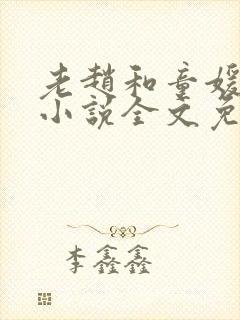 老趙和童媛
小説全文免
李鑫鑫